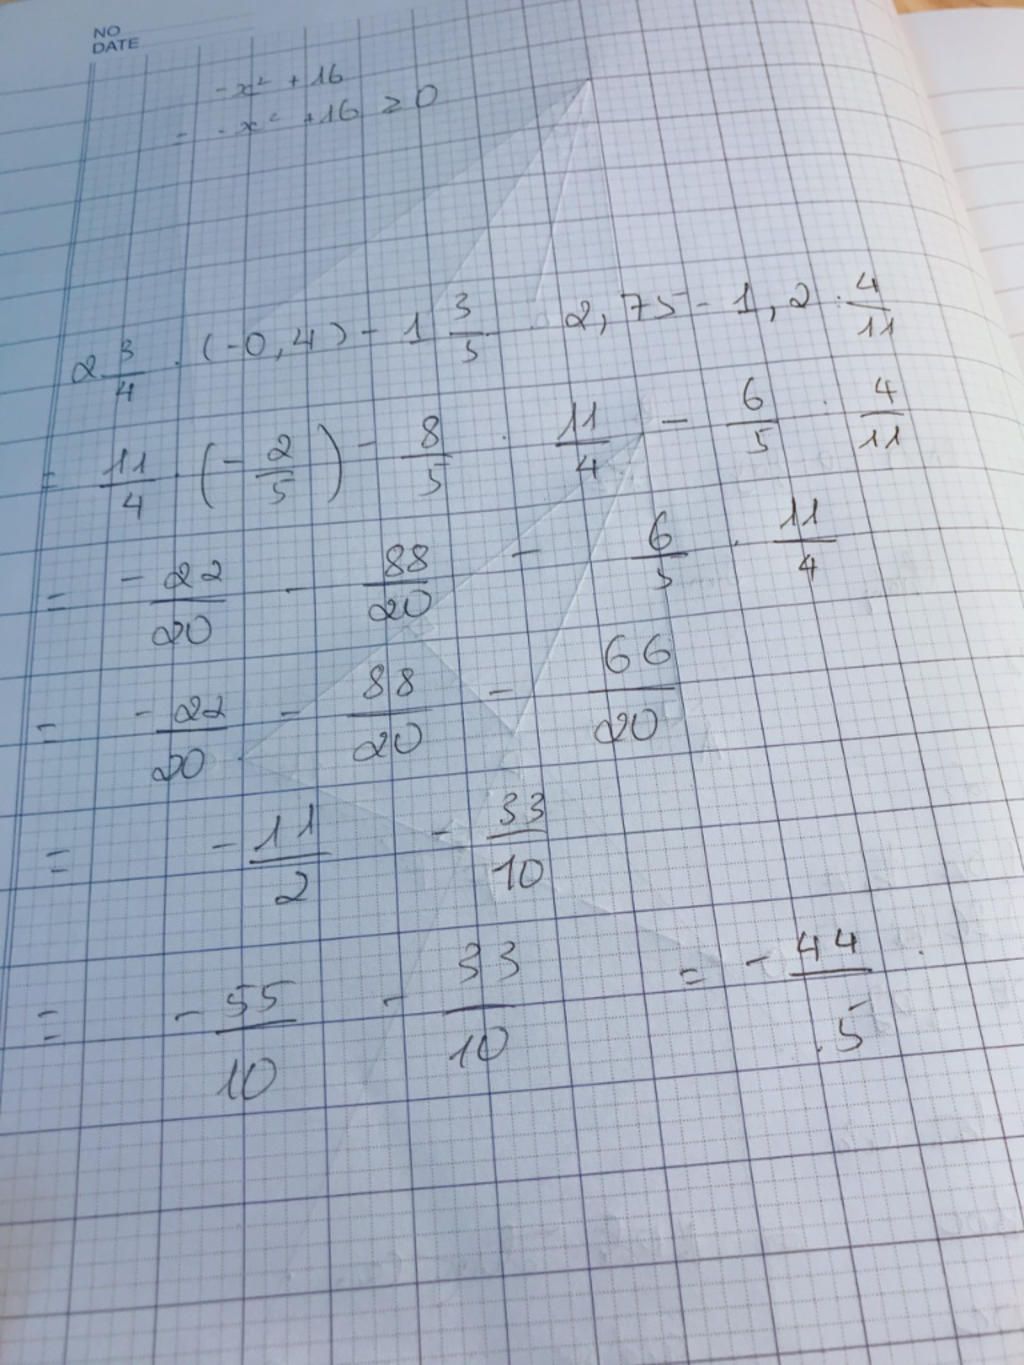 NO
DATE
-x² + 16
= -x² + 16 ≥ 0
2 3/4 . (-0,4) - 1 3/5 . 2,75 - 1,2 : 4/11
= 11/4 . (- 2/5) - 8/5 . 11/4 - 6/5 : 4/11
= - 22/20 - 88/20 - 6/5 . 11/4
= - 22/20 - 88/20 - 66/20
= - 11/2 - 33/10
= - 55/10 - 33/10 = - 44/5